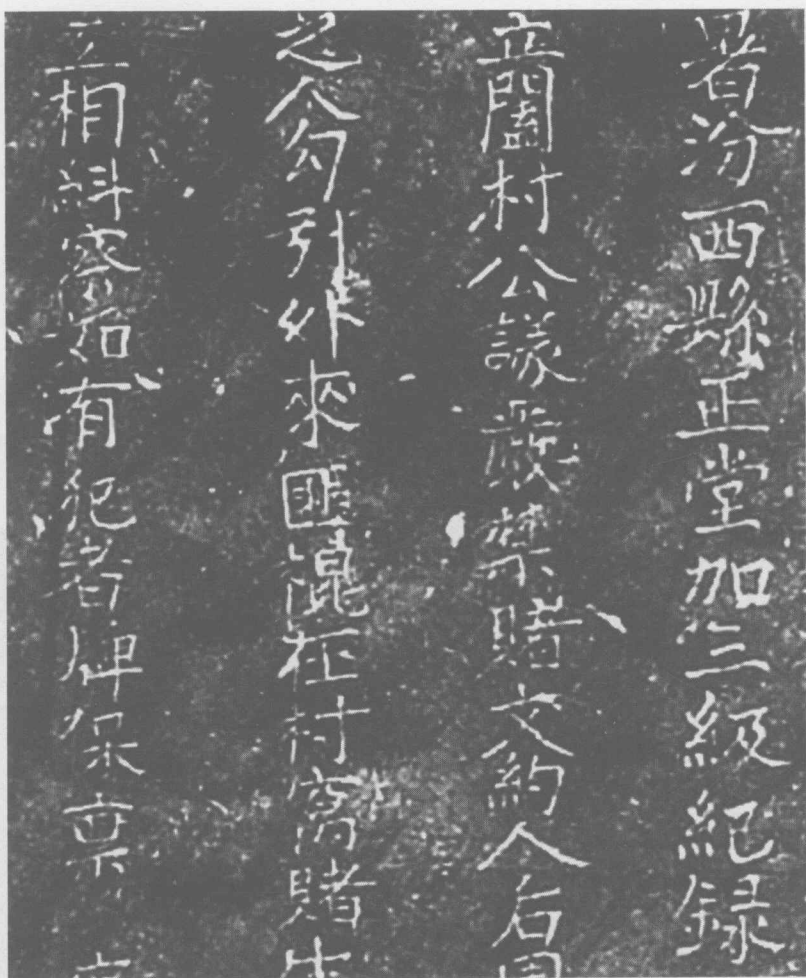 署汾西縣正堂加三級紀録
立闔村公議嚴禁賭文約人后
之人勾引外來匪混在村窩賭
互相糾察如有犯者牌保稟